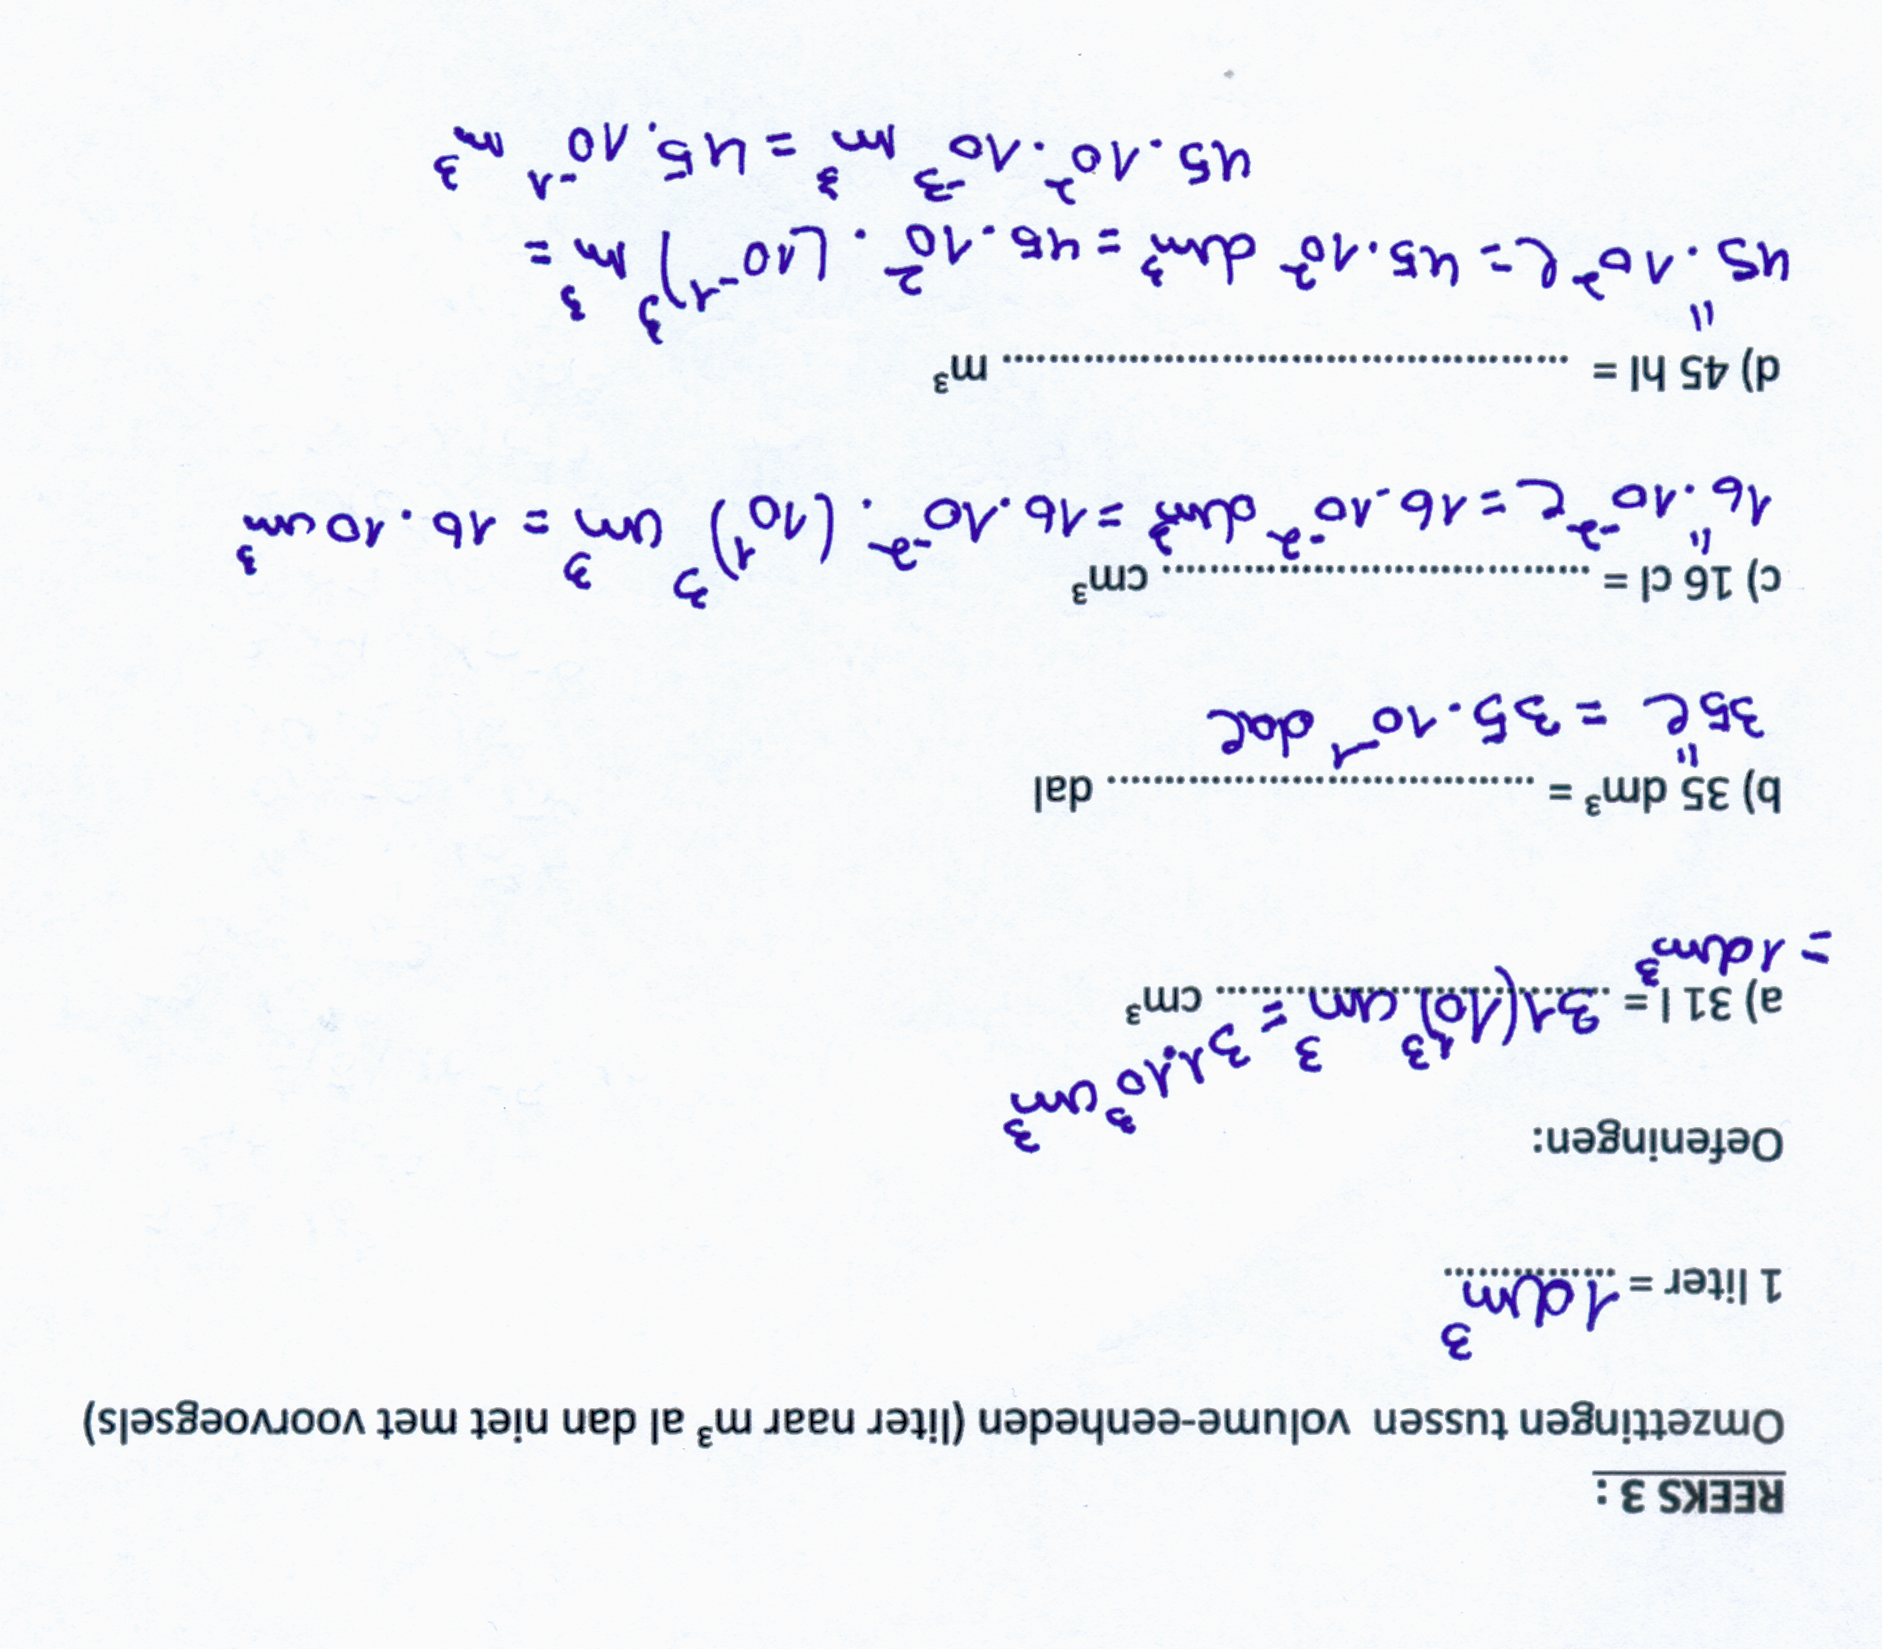 REEKS 3 :
Omzettingen tussen volume-eenheden (liter naar m³ al dan niet met voorvoegsels)
1 liter = 1dm³
Oefeningen:
a) 31 l = 31(10¹)³ cm³ = 31.10³ cm³ cm³
= 1dm³
b) 35 dm³ = .......... dal
35l = 35.10⁻¹ dal
c) 16 cl = .......... cm³
16.10⁻² l = 16.10⁻² dm³ = 16.10⁻² . (10¹)³ cm³ = 16.10 cm³
d) 45 hl = .......... m³
45.10² l = 45.10² dm³ = 45.10² . (10⁻¹)³ m³ =
45.10².10⁻³ m³ = 45.10⁻¹ m³